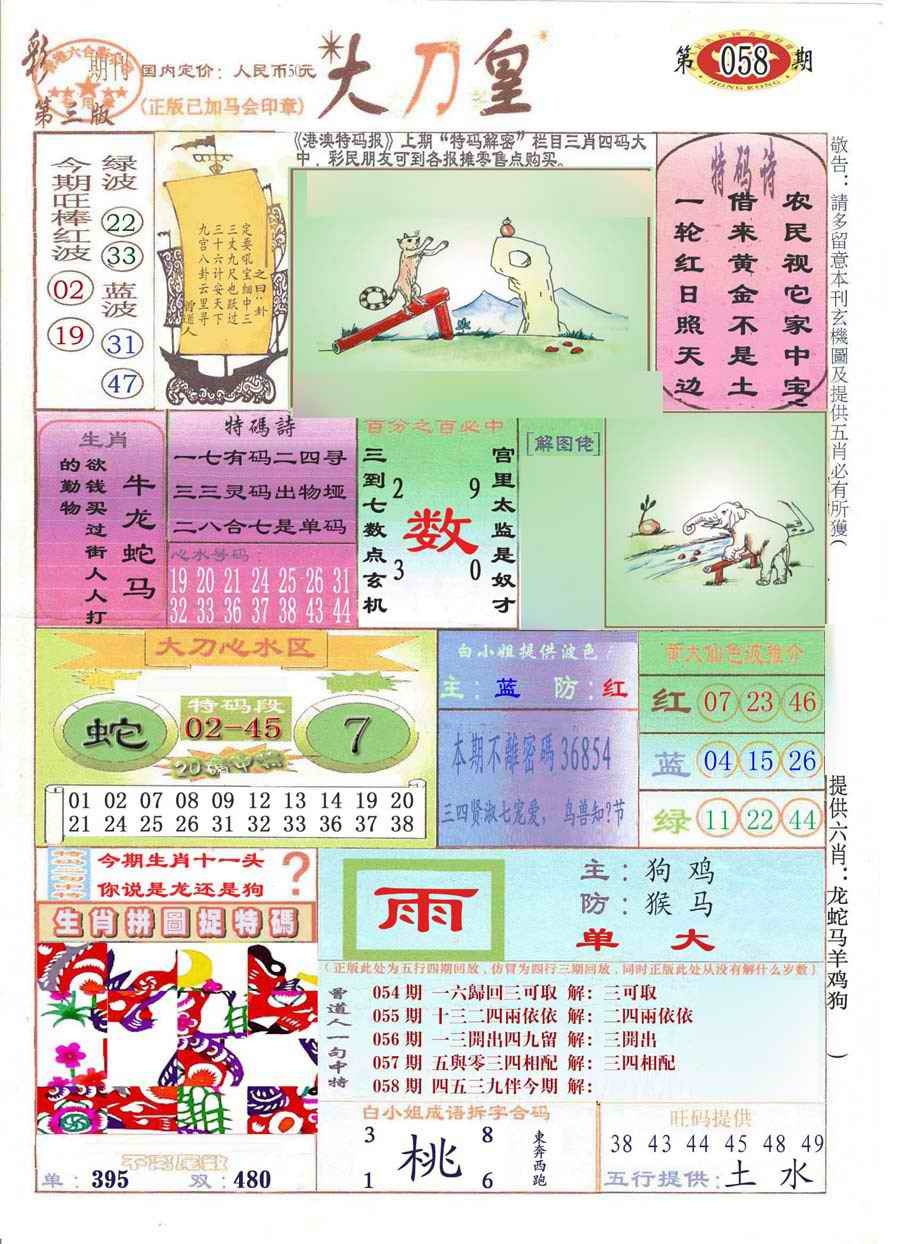 彩
期刊
第三版
国内定价：人民币50元
(正版已加马会印章)
大刀皇
第058期
HONG KONG
《港澳特码报》上期“特码解密”栏目三肖四码大
中，彩民朋友可到各报摊零售点购买。
今期旺棒红波
02
19
绿波
22
33
蓝波
31
47
之曰：卦
定要吼宝细中三
三丈九尺也跃过
三十六计安天下
九宫八卦云里寻
曾道人
特码诗
农民视它家中宝
借来黄金不是土
一轮红日照天边
敬告：請多留意本刊玄機圖及提供五肖必有所獲(
生肖
牛龙蛇马
欲钱买过街人人打
的勤物
特碼詩
一七有码二四寻
三三灵码出物垭
二八合七是单码
心水号码：
19 20 21 24 25 26 31
32 33 36 37 38 43 44
百分之百必中
三到七数点玄机
2 9
数
3 0
宫里太监是奴才
[解图佬]
大刀心水区
蛇
特码段
02-45
7
20碼中特
01 02 07 08 09 12 13 14 19 20
21 24 25 26 31 32 33 36 37 38
白小姐提供波色
主：蓝 防：红
本期不離密碼36854
三四贤淑七宠爱，鸟兽知?节
黄大仙色波推介
红 07 23 46
蓝 04 15 26
绿 11 22 44
提供六肖：龙蛇马羊鸡狗 )
今期生肖十一头
你说是龙还是狗
?
生肖拼圖捉特碼
雨
主：狗鸡
防：猴马
单 大
(正版此处为五行四期回放，仿冒为四行三期回放，同时正版此处从没有解什么岁数)
曾道人一句中特
054期 一六歸回三可取 解：三可取
055期 十三二四兩依依 解：二四兩依依
056期 一三開出四九留 解：三開出
057期 五與零三四相配 解：三四相配
058期 四五三九伴今期 解：
单：395 双：480
白小姐成语拆字合码
3 8
桃
1 6
東奔西跑
旺码提供
38 43 44 45 48 49
五行提供：土 水